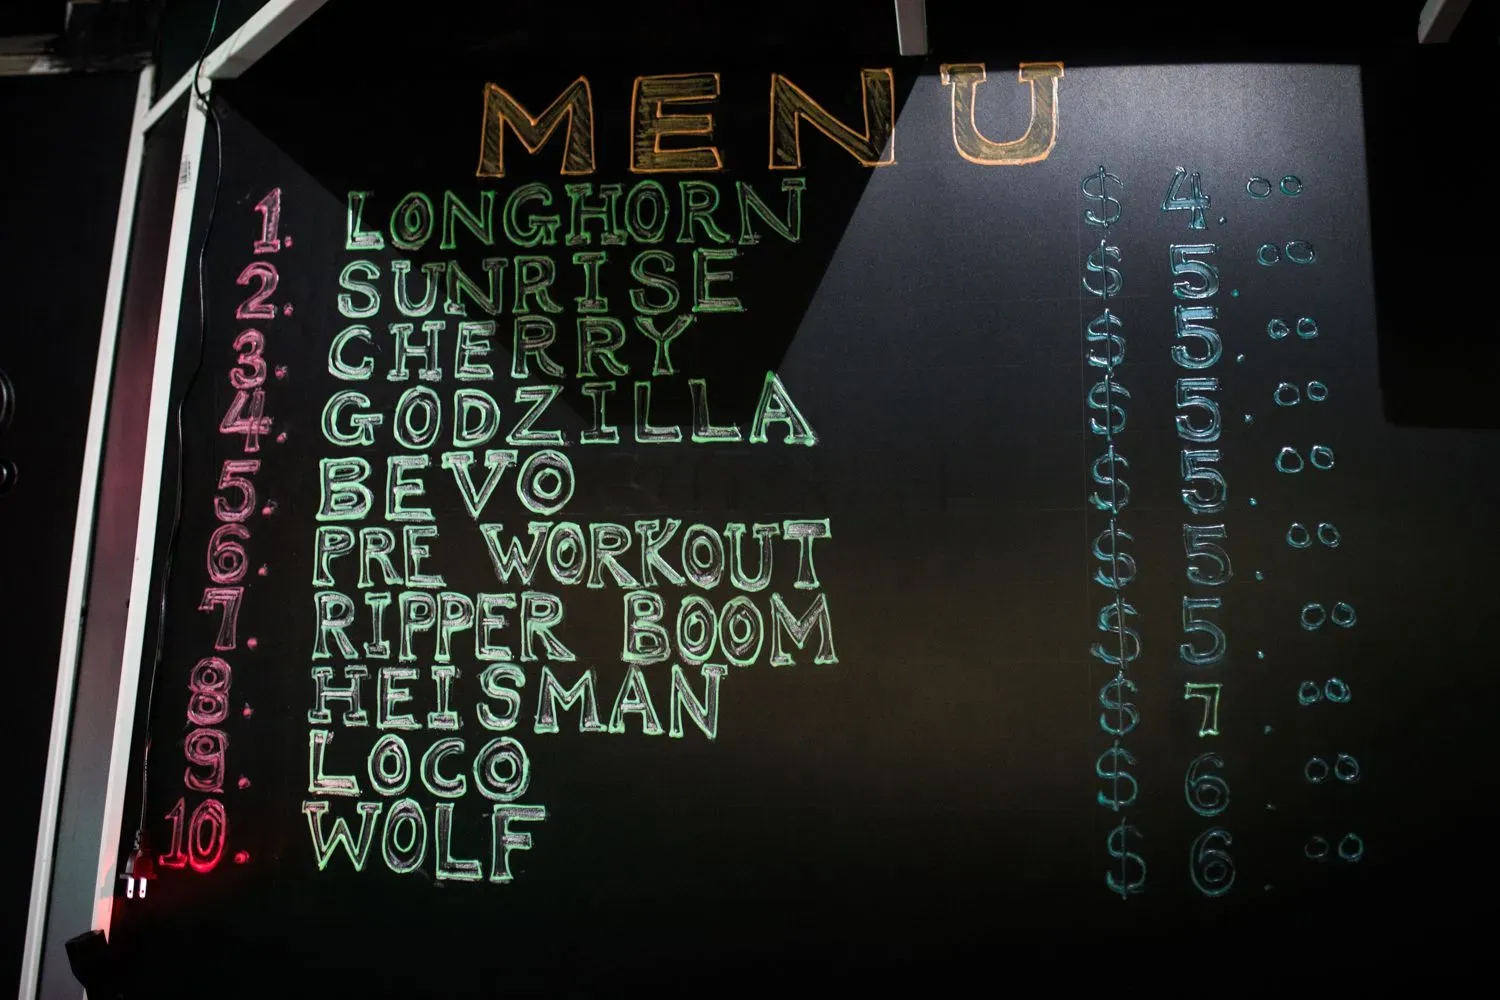 MENU
1. LONGHORN $ 4.00
2. SUNRISE $ 5.00
3. CHERRY $ 5.00
4. GODZILLA $ 5.00
5. BEVO $ 5.00
6. PRE WORKOUT $ 5.00
7. RIPPER BOOM $ 5.00
8. HEISMAN $ 7.00
9. LOCO $ 6.00
10. WOLF $ 6.00